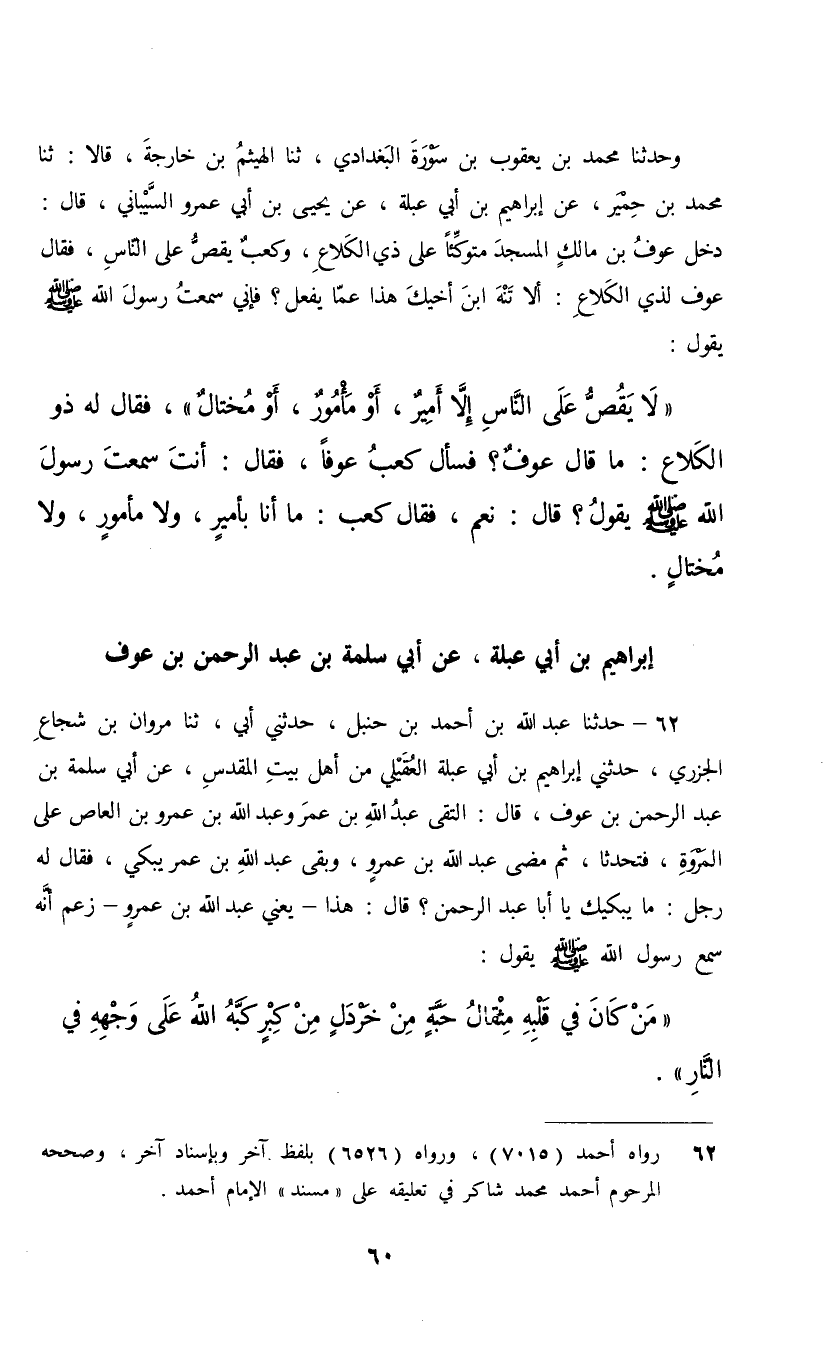 وحدثنا محمد بن يعقوب بن سَوْرَةَ البَغدادي ، ثنا الهيثمُ بن خارجةَ ، قالا : ثنا
محمد بن حِمْيَر ، عن إبراهيم بن أبي عبلة ، عن يحيى بن أبي عمرو السَّيْباني ، قال :
دخل عوفُ بن مالكٍ المسجدَ متوكِّئاً على ذي الكَلاعِ ، وكعبٌ يقصُّ على النّاسِ ، فقال
عوف لذي الكَلاعِ : ألا تَنْهَ ابنَ أخيكَ هذا عمّا يفعل ؟ فإني سمعتُ رسولَ الله ﷺ
يقول :
« لَا يَقُصُّ عَلَى النَّاسِ إِلَّا أَمِيرٌ ، أَوْ مَأْمُورٌ ، أَوْ مُختالٌ » ، فقال له ذو
الكَلاعِ : ما قال عوفٌ ؟ فسأل كعبُ عوفاً ، فقال : أنتَ سمعتَ رسولَ
الله ﷺ يقولُ ؟ قال : نعم ، فقال كعب : ما أنا بأميرٍ ، ولا مأمورٍ ، ولا
مُختالٍ .
إبراهيم بن أبي عبلة ، عن أبي سلمة بن عبد الرحمن بن عوف
٦٢ – حدثنا عبد الله بن أحمد بن حنبل ، حدثني أبي ، ثنا مروان بن شجاعِ
الجزري ، حدثني إبراهيم بن أبي عبلة العُقَيْلي من أهل بيتِ المقدسِ ، عن أبي سلمة بن
عبد الرحمن بن عوف ، قال : التقى عبدُ اللهِ بن عمرَ وعبد الله بن عمرو بن العاص على
المَرْوَةِ ، فتحدثا ، ثم مضى عبد الله بن عمرٍو ، وبقى عبد اللهِ بن عمر يبكي ، فقال له
رجل : ما يبكيك يا أبا عبد الرحمن ؟ قال : هذا – يعني عبد الله بن عمرٍو – زعم أنَّه
سمع رسول الله ﷺ يقول :
« مَنْ كَانَ في قَلْبِهِ مِثْقالُ حَبَّةٍ مِنْ خَرْدَلٍ مِنْ كِبْرٍ كَبَّهُ اللهُ عَلَى وَجْهِهِ في
النَّارِ » .
٦٢ رواه أحمد (٧٠١٥) ، ورواه (٦٥٢٦) بلفظ آخر وبإسناد آخر ، وصححه
المرحوم أحمد محمد شاكر في تعليقه على « مسند » الإمام أحمد .
٦٠